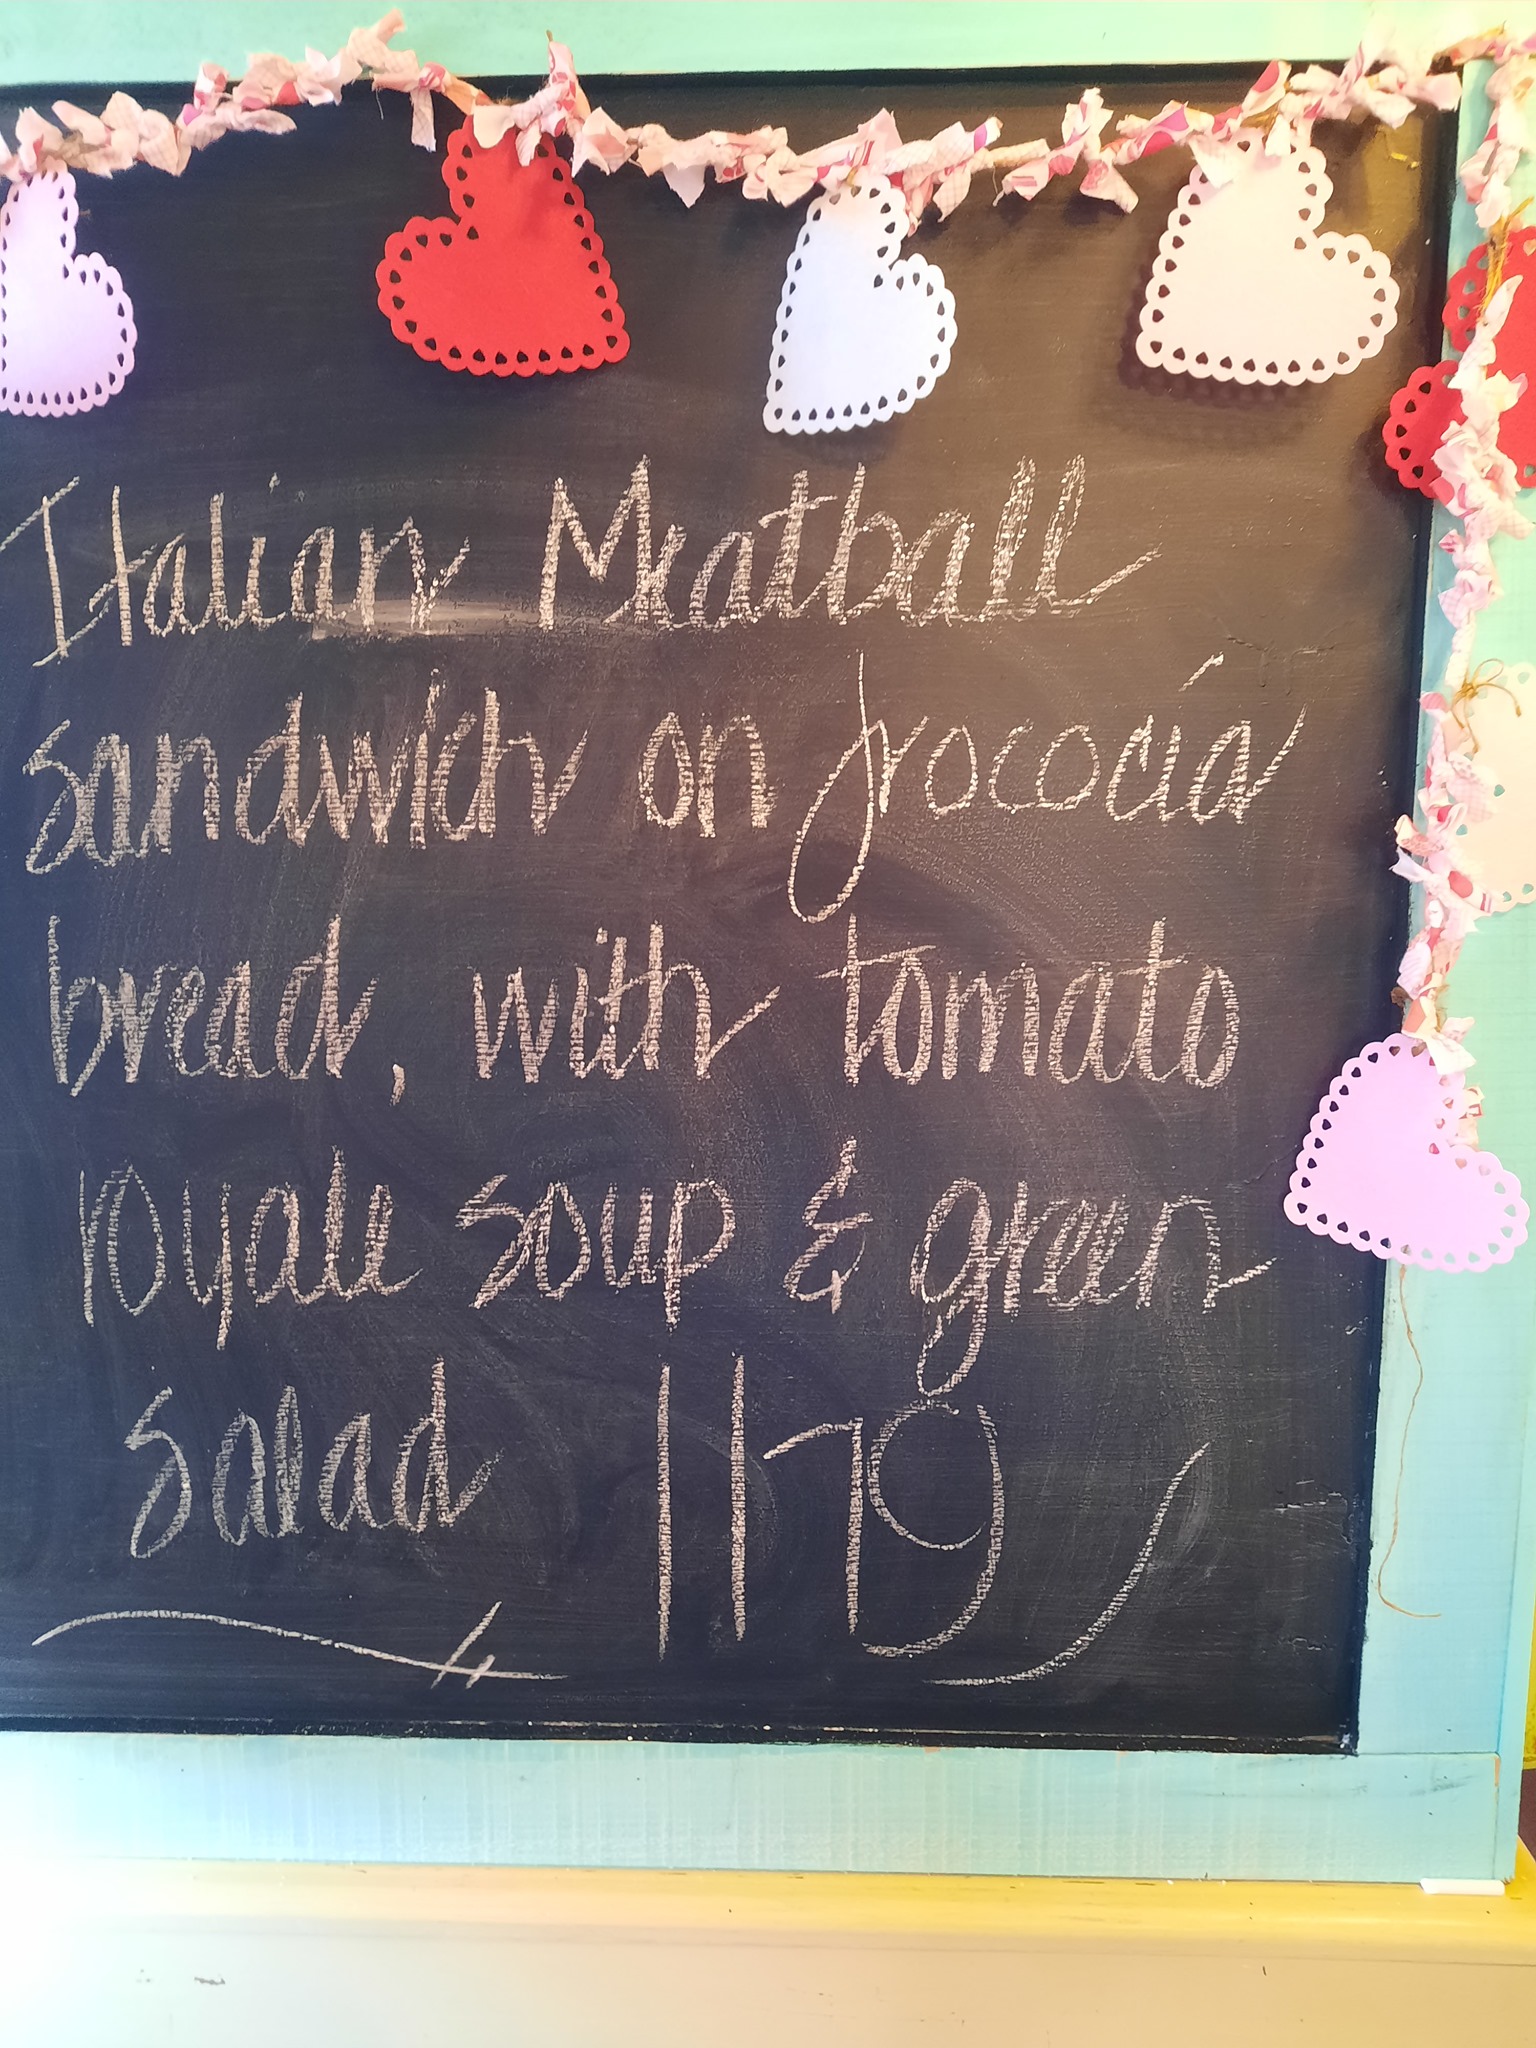 Italian Meatball
sandwich on fococia
bread, with tomato
royale soup & green
salad 1179